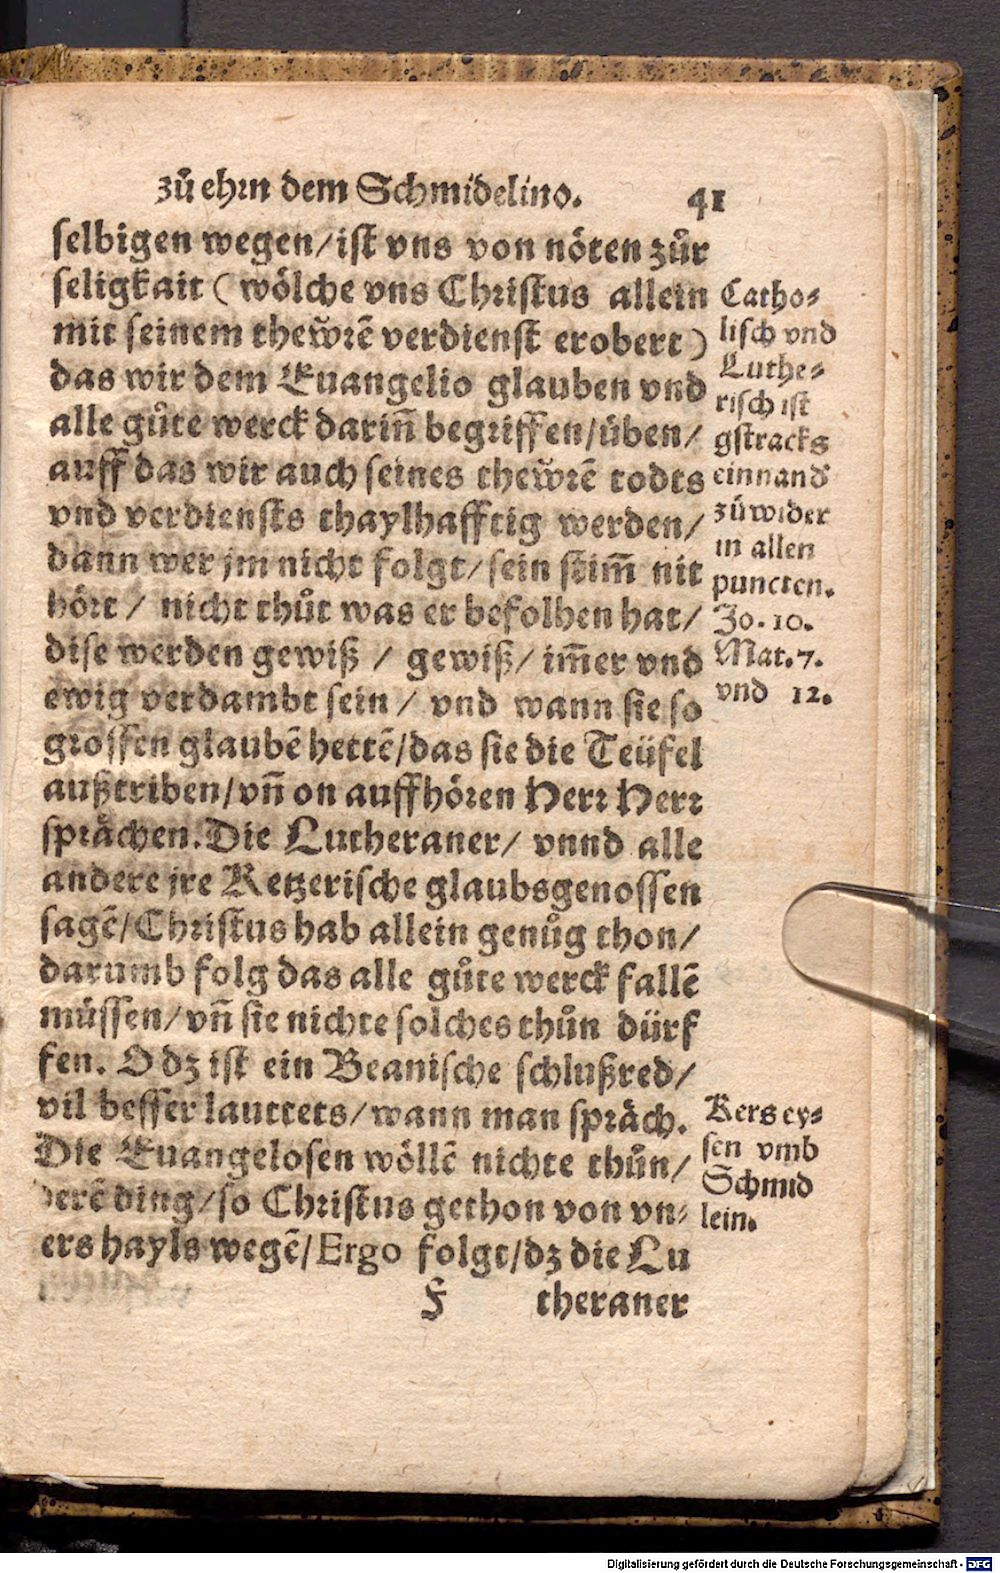 zů ehrn dem Schmidelino. 41
selbigen wegen/ ist vns von nöten zůr
seligkait ( wölche vns Christus allein
mit seinem thew̌rē verdienst erobert )
das wir dem Euangelio glauben vnd
alle gůte werck darin̄ begriffen/ üben/
auff das wir auch seines thew̌rē todts
vnd verdiensts thaylhafftig werden/
dann wer jm nicht folgt/ sein stim̄ nit
hört / nicht thůt was er befolhen hat/
dise werden gewiß / gewiß/ im̄er vnd
ewig verdambt sein / vnd wann sie so
grossen glaubē hettē/ das sie die Teüfel
außtriben/ vn̄ on auffhören Herr Herr
sprächen. Die Lutheraner/ vnnd alle
andere jre Ketzerische glaubsgenossen
sagē/ Christus hab allein genůg thon/
darumb folg das alle gůte werck fallē
müssen/ vn̄ sie nichte solches thůn dürf
fen. O dz ist ein Beanische schlußred/
vil besser lauttets/ wann man spräch.
Die Euangelosen wöllē nichte thůn/
derē ding/ so Christus gethon von vn⸗
ers hayls wegē/ Ergo folgt/ dz die Lu
F theraner
Catho⸗
lisch vnd
Luthe⸗
risch ist
gstracks
einnand
zůwider
in allen
puncten.
Jo. 10.
Mat. 7.
vnd 12.
Kers ey⸗
sen vmb
Schmid
lein.
Digitalisierung gefördert durch die Deutsche Forschungsgemeinschaft - DFG